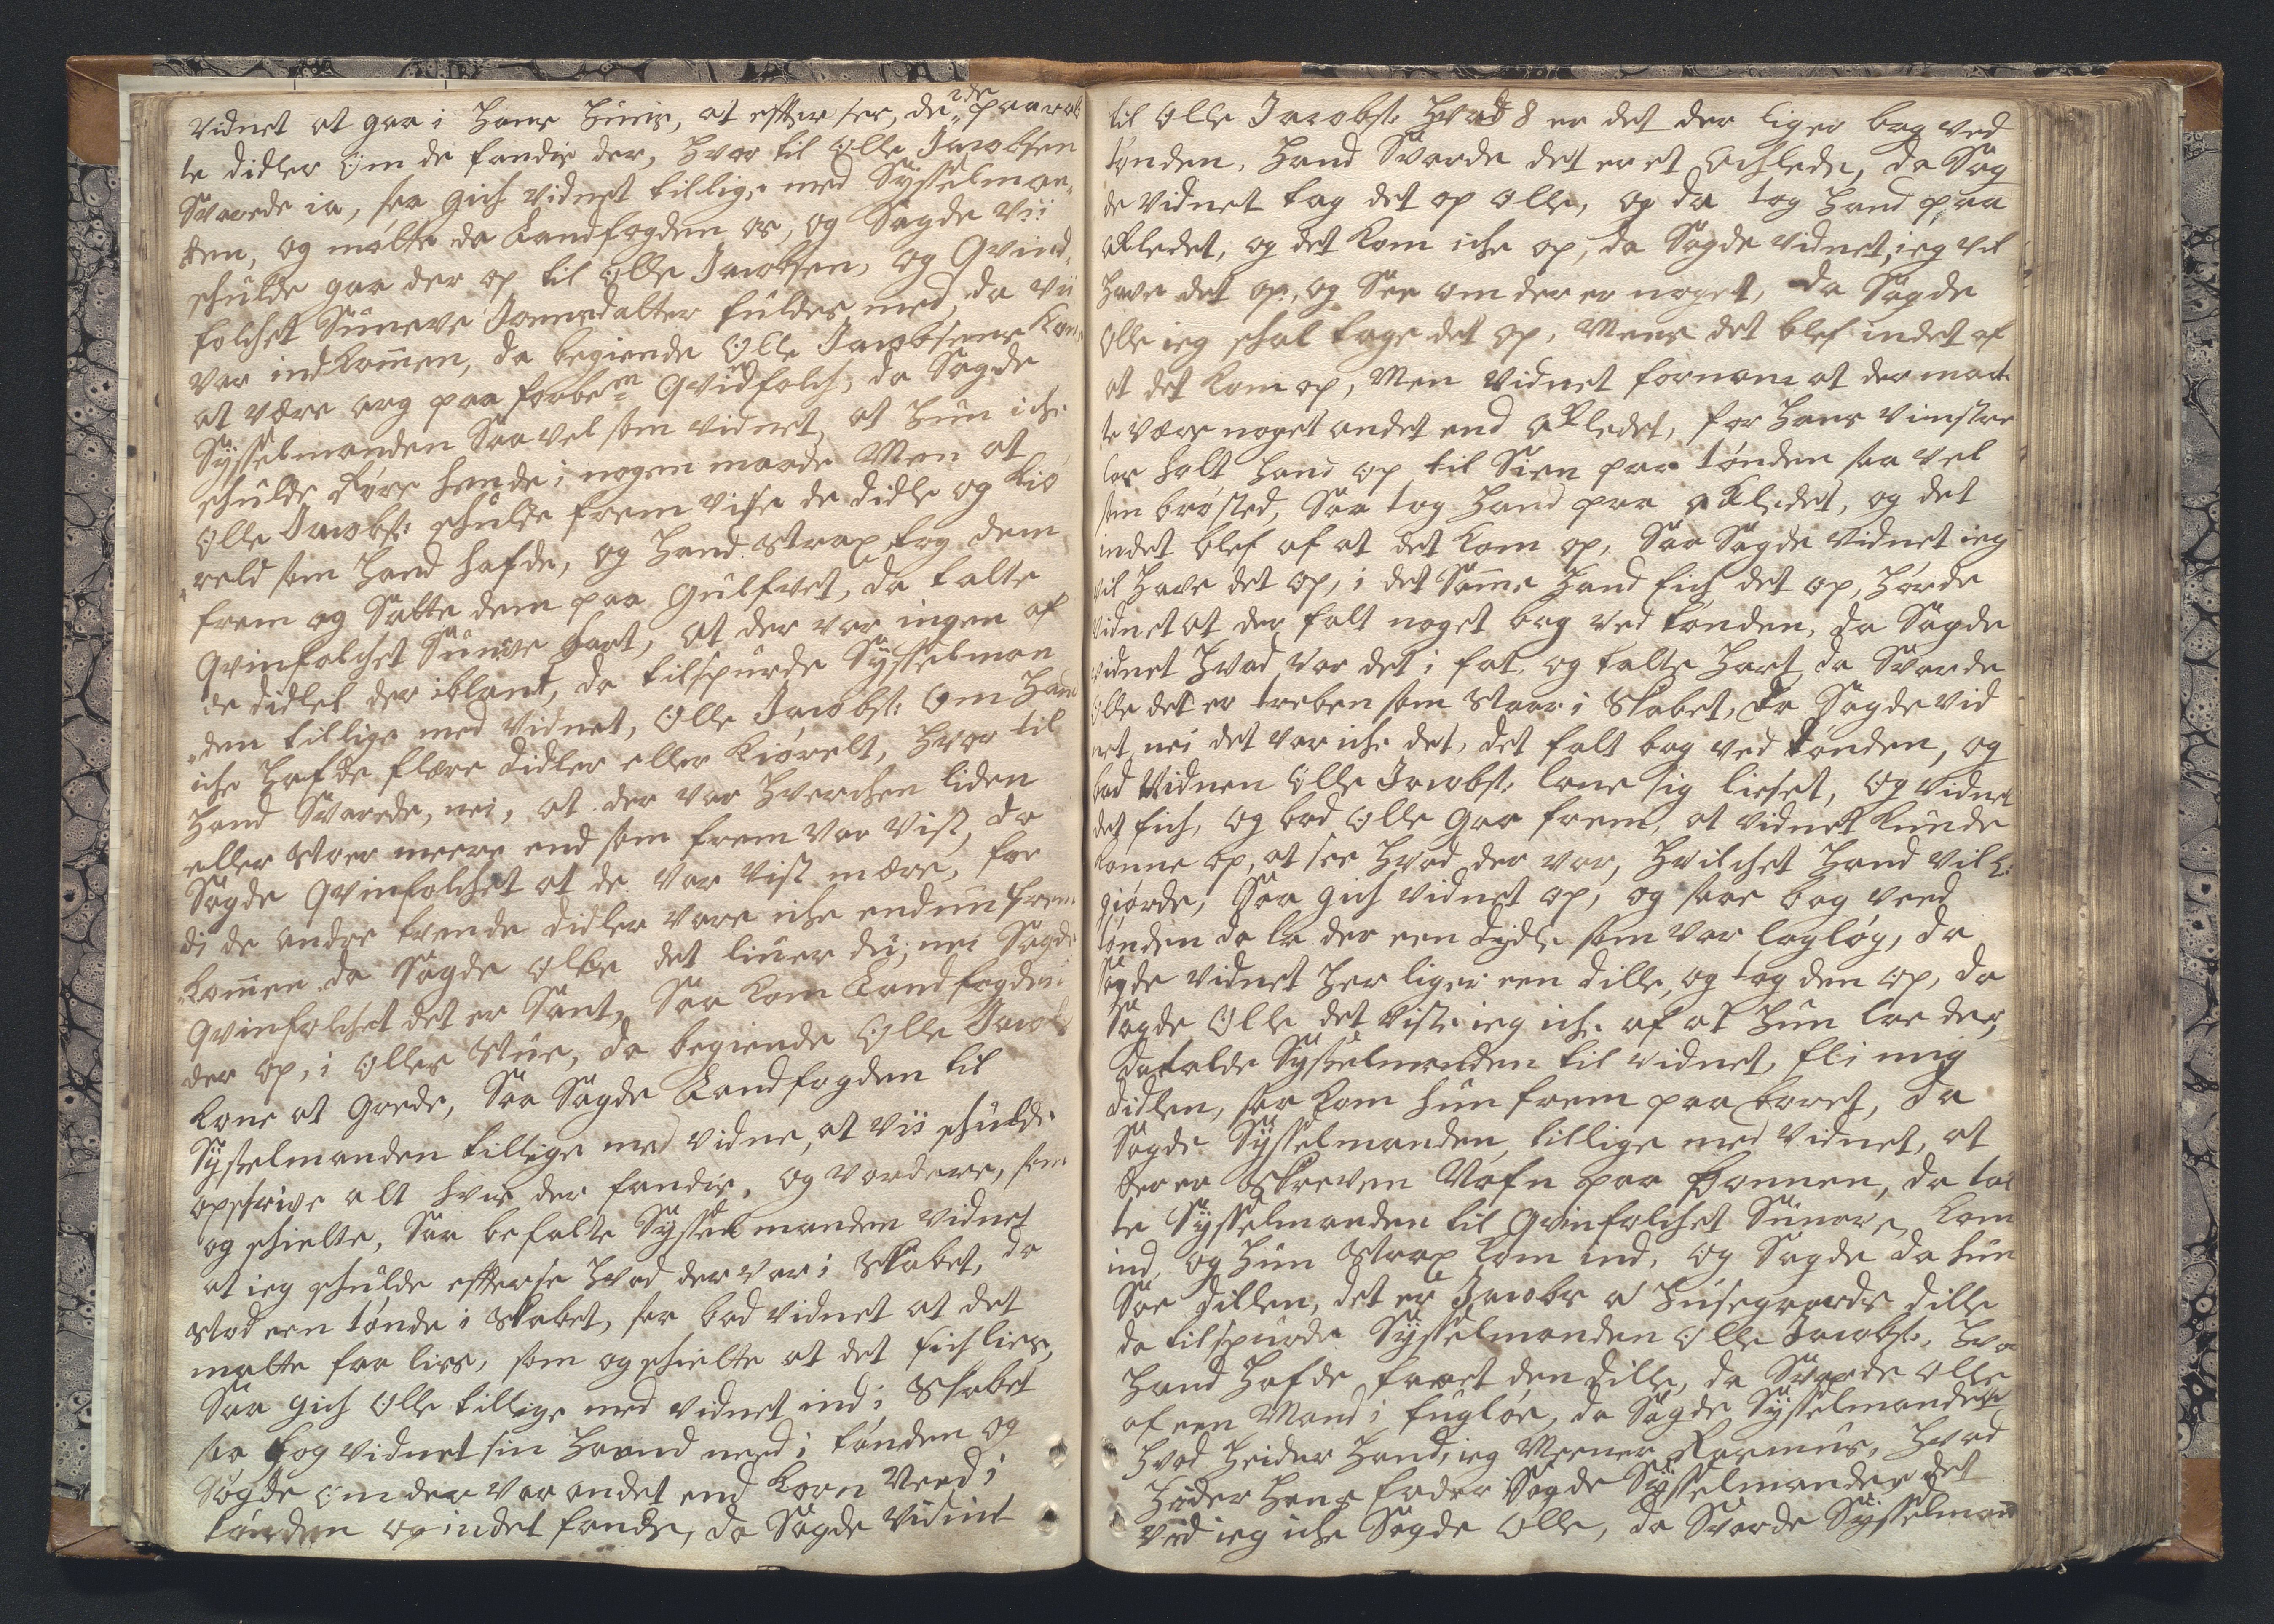 vidnet at gaa i Hans Huus, at effter see, de 2de paaraab
te didler om de fandis der, hvor til Olle Jacobsen
Svarede ia, saa gich vidnet tillige med Sysselman„
den, og møtte da Landfogden os, og Sagde vii
schulde gaa der op til Olle Jacobsen, og Qvind„
folchet Suneve Joensdatter fuldes med, da vii
var indkommen, da begiende Olle Jacobsens Kone
at være arg paa forbem Qvindfolch, da Sagde
Sysselmanden Saavel som vidnet, at hun iche
schulde røre hende i nogen maade Men at
Olle Jacobs: schulde frem vise de didle og Kiø
reld som Hand hafde, og Hand strax tog dem
frem og Satte dem paa Gulfvet, da talte
Qvinfolchet Suneve hart, at der var ingen af
de didlet der iblant, da tilspurde Sysselman
den tillige med vidnet, Olle Jacobs: Om Hand
iche Hafde flære didler eller Kiørelt, hvor til
Hand Svarede, nei, at der var hverchen liden
eller stoer meere end som frem var vist, da
Sagde Qvinfolchet at de var vist mære, for
di de andre tvende didler vare iche endnu frem
kommen da Sagde Olle det liuer du, nei Sagde
Qvinfolchet det er Sant, Saa kom Landfogden
der op, i Olles Stue, da begiende Olle Jacobs
Kone at Græde, Saa Sagde Landfogden til
Sysselmanden tillige med vidne, at vii schulde
opschrive alt hvis der fandis, og vordere, som
og schielte, Saa befalte Sysselmanden vidnet
at ieg schulde effterse hvad der var i Skabet, da
stod een tønde i Skabet, saa bad vidnet at det
matte faa lies, som og schielte at det fich lies,
Saa gich Olle tillige med vidnet ind i Skabet
saa tog vidnet sin Haand need i tønden og
Søgde om der var andet end Korn Need i
tønden og indet fande, da Sagde vidnit
til Olle Jacobs: Hvad er det der liger bag ved
tønden, Hand Svarde det er et achlede, da Sag
de vidnet tag det op Olle, og da tog Hand paa
akledet, og det kom iche op, da Sagde vidnet, ieg vil
Have det op, og See om der er noget, da Sagde
Olle ieg schal tage det op, Mens det blef indet af
at det kom op, Men vidnet fornam at der maat
te være noget andet end akledet, for Hans vinstre
laar holt Hand op til Sien paa tønden saa vel
som brøsted, Saa tog Hand paa akledet, og det
indet blef af at det kom op, Saa Sagde vidnet ieg
vil Have det op, i det Samme Hand fich det op, Hørde
vidnet at der falt noget bag ved tønden, da Sagde
vidnet Hvad var det i fat, og talte Hart, da Svarde
Olle det er treben som staar i Skabet, da Sagde vid
net, nei det var iche det, det falt bag ved tønden, og
bad vidnen Olle Jacobs: lane sig lieset, og vidnet
det fich, og bad Olle gaa frem, at vidnet kunde
komme op, at see Hvad der var, Hvilchet Hand vill:
giørde, Saa gich vidnet op, og saae bag veed
tønden da la der een dydle som var lagløg, da
Sagde vidnet Her liger een dille, og tog den op, da
Sagde Olle det viste ieg iche af at hun laae der,
da talde Sysselmanden til vidnet, fli mig
didlen, saa kom hun frem paa boret, da
Sagde Sysselmanden tillige med vidnet, at
der er Skreven Nafn paa bonnen, da tal
te Sysselmanden til Qvinfolchet Suneve, kom
ind, og hun strax kom ind, og Sagde da hun
Saae dillen, det er Jacobs a Husegaards dille
da tilspurde Sysselmanden Olle Jacobs:, Hvor
Hand Hafde faaet den dille, da Svarde Olle
af een Mand i fugløe, da Sagde Sysselmanden
Hvad Heider Hand, ieg Meener Rasmus, Hvad
Heder Hans fader Sagde Sysselmanden det
ved ieg iche Sagde Olle, da Svarde Sysselmand